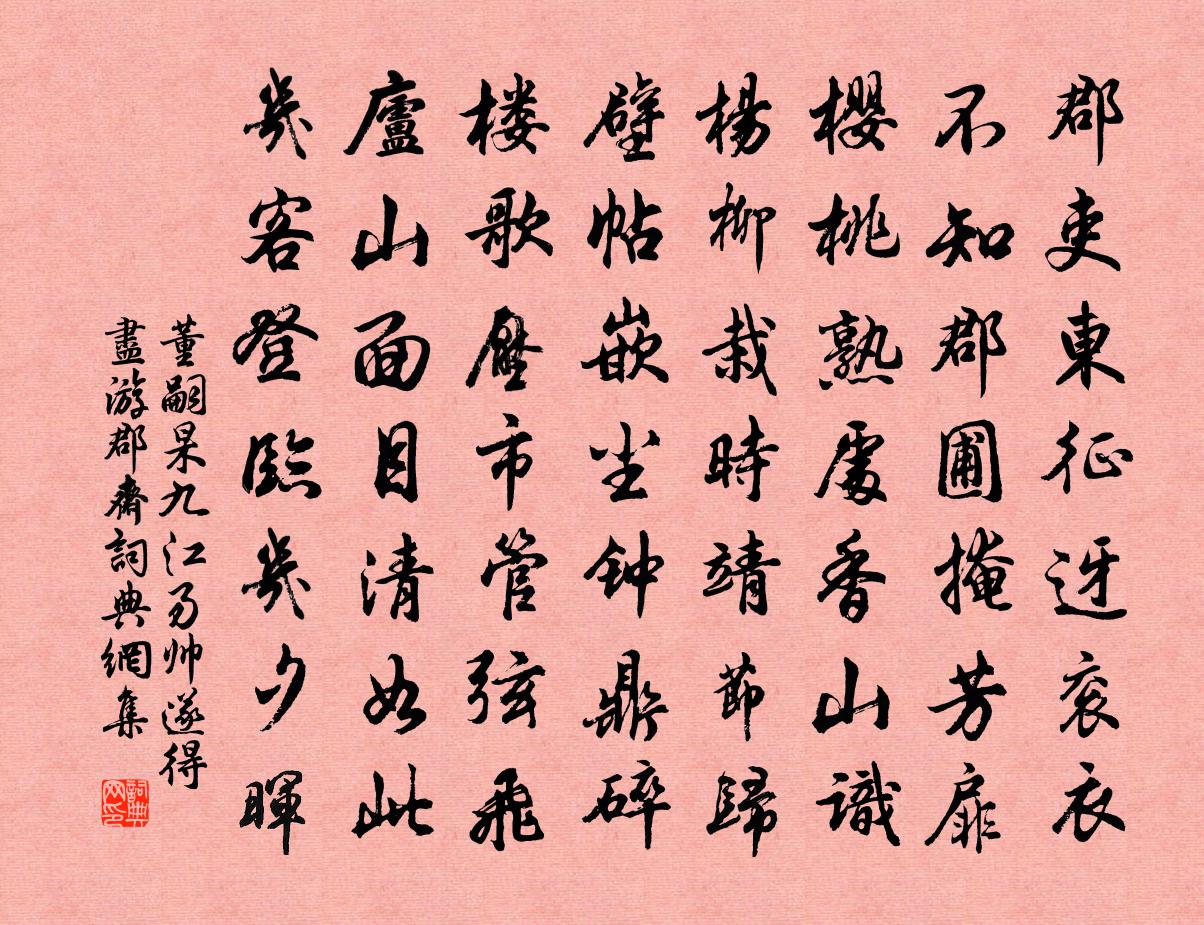 郡吏東征迓袞衣
不知郡圃掩芳扉
櫻桃熟處香山識
楊柳栽時靖節歸
壁帖嵌尘钟鼎碎
楼歌壓市管弦飛
廬山面目清如此
幾客登臨幾夕暉
董嗣杲九江易帅遂得
盡游郡齋詞典網集
詞典网印